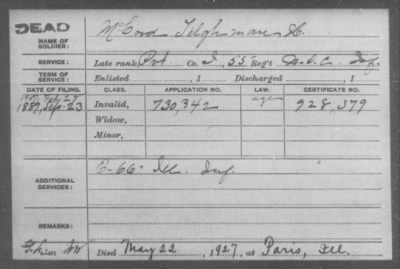 DEAD
NAME OF SOLDIER: McCord Tilghman H.
SERVICE: Late rank Pvt Co. I, 55 Reg't Inf.
TERM OF SERVICE: Enlisted , 1 Discharged , 1
DATE OF FILING. CLASS. APPLICATION NO. LAW. CERTIFICATE NO.
1889, Sep. 23 Invalid, 730,342 age 928,379
Widow,
Minor,
ADDITIONAL SERVICES: 66" Ill. Inf.
REMARKS:
Died May 22, 1927, at Paris, Ill.